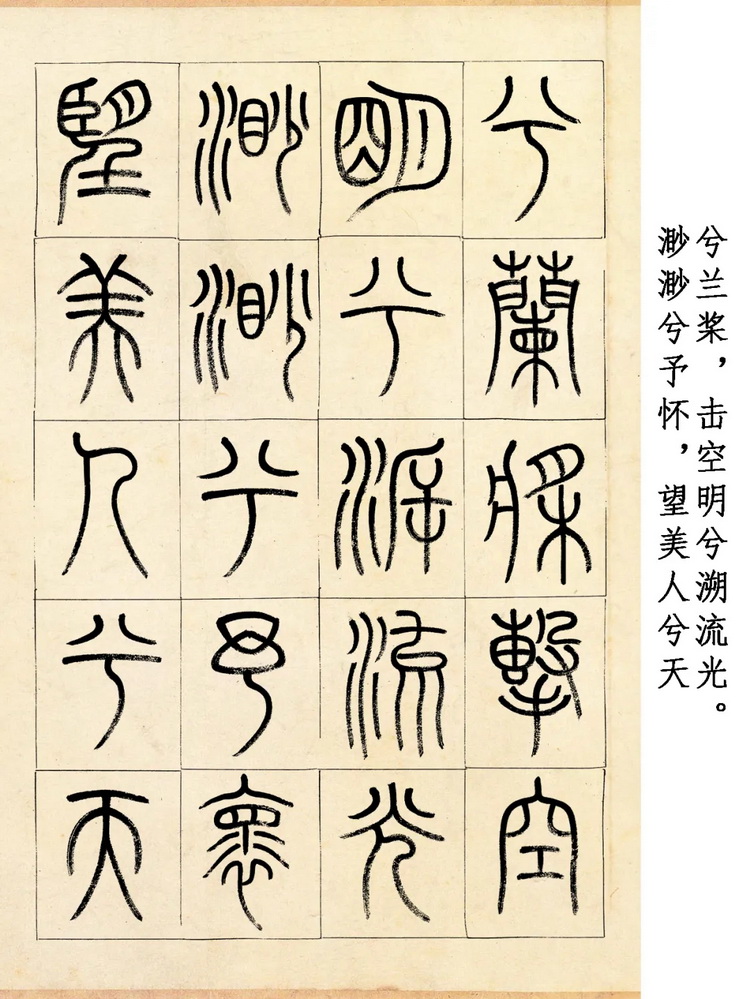 兮蘭槳擊空
朙兮泝流光
渺渺兮予褱
朢美人兮天
兮兰桨，击空明兮溯流光。
渺渺兮予怀，望美人兮天